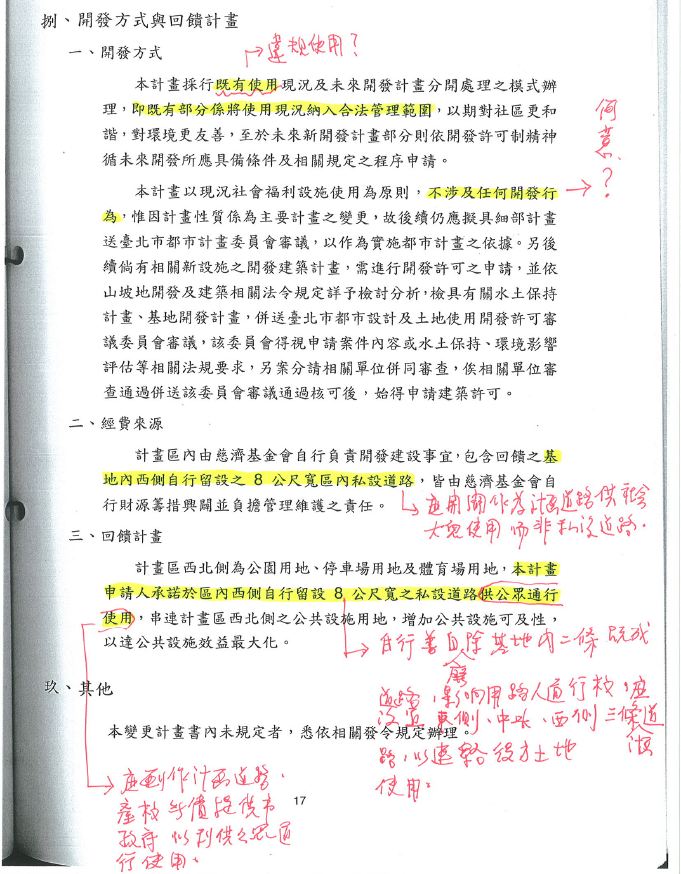 捌、開發方式與回饋計畫
一、開發方式
違規使用？
本計畫採行既有使用現況及未來開發計畫分開處理之模式辦
理，即既有部分係將使用現況納入合法管理範圍，以期對社區更和
諧，對環境更友善，至於未來新開發計畫部分則依開發許可制精神
循未來開發所應具備條件及相關規定之程序申請。
何意？
本計畫以現況社會福利設施使用為原則，不涉及任何開發行
為，惟因計畫性質係為主要計畫之變更，故後續仍應擬具細部計畫
送臺北市都市計畫委員會審議，以作為實施都市計畫之依據。另後
續倘有相關新設施之開發建築計畫，需進行開發許可之申請，並依
山坡地開發及建築相關法令規定詳予檢討分析，檢具有關水土保持
計畫、基地開發計畫，併送臺北市都市設計及土地使用開發許可審
議委員會審議，該委員會得視申請案件內容或水土保持、環境影響
評估等相關法規要求，另案分請相關單位併同審查，俟相關單位審
查通過併送該委員會審議通過核可後，始得申請建築許可。
二、經費來源
計畫區內由慈濟基金會自行負責開發建設事宜，包含回饋之基
地內西側自行留設之 8 公尺寬區內私設道路，皆由慈濟基金會自
行財源籌措興闢並負擔管理維護之責任。
應開闢作為計画道路供社會
大眾使用而非私設道路。
三、回饋計畫
計畫區西北側為公園用地、停車場用地及體育場用地，本計畫
申請人承諾於區內西側自行留設 8 公尺寬之私設道路供公眾通行
使用，串連計畫區西北側之公共設施用地，增加公共設施可及性，
以達公共設施效益最大化。
自行廢除基地內二條既成
道路，影響用路人通行权，應
設置東側、中央、西側三條道
路，以連絡後方土地
使用。
玖、其他
本變更計畫書內未規定者，悉依相關發令規定辦理。
應劃作計画道路，
產权無償提供市
政府以利供公眾通
行使用。
17